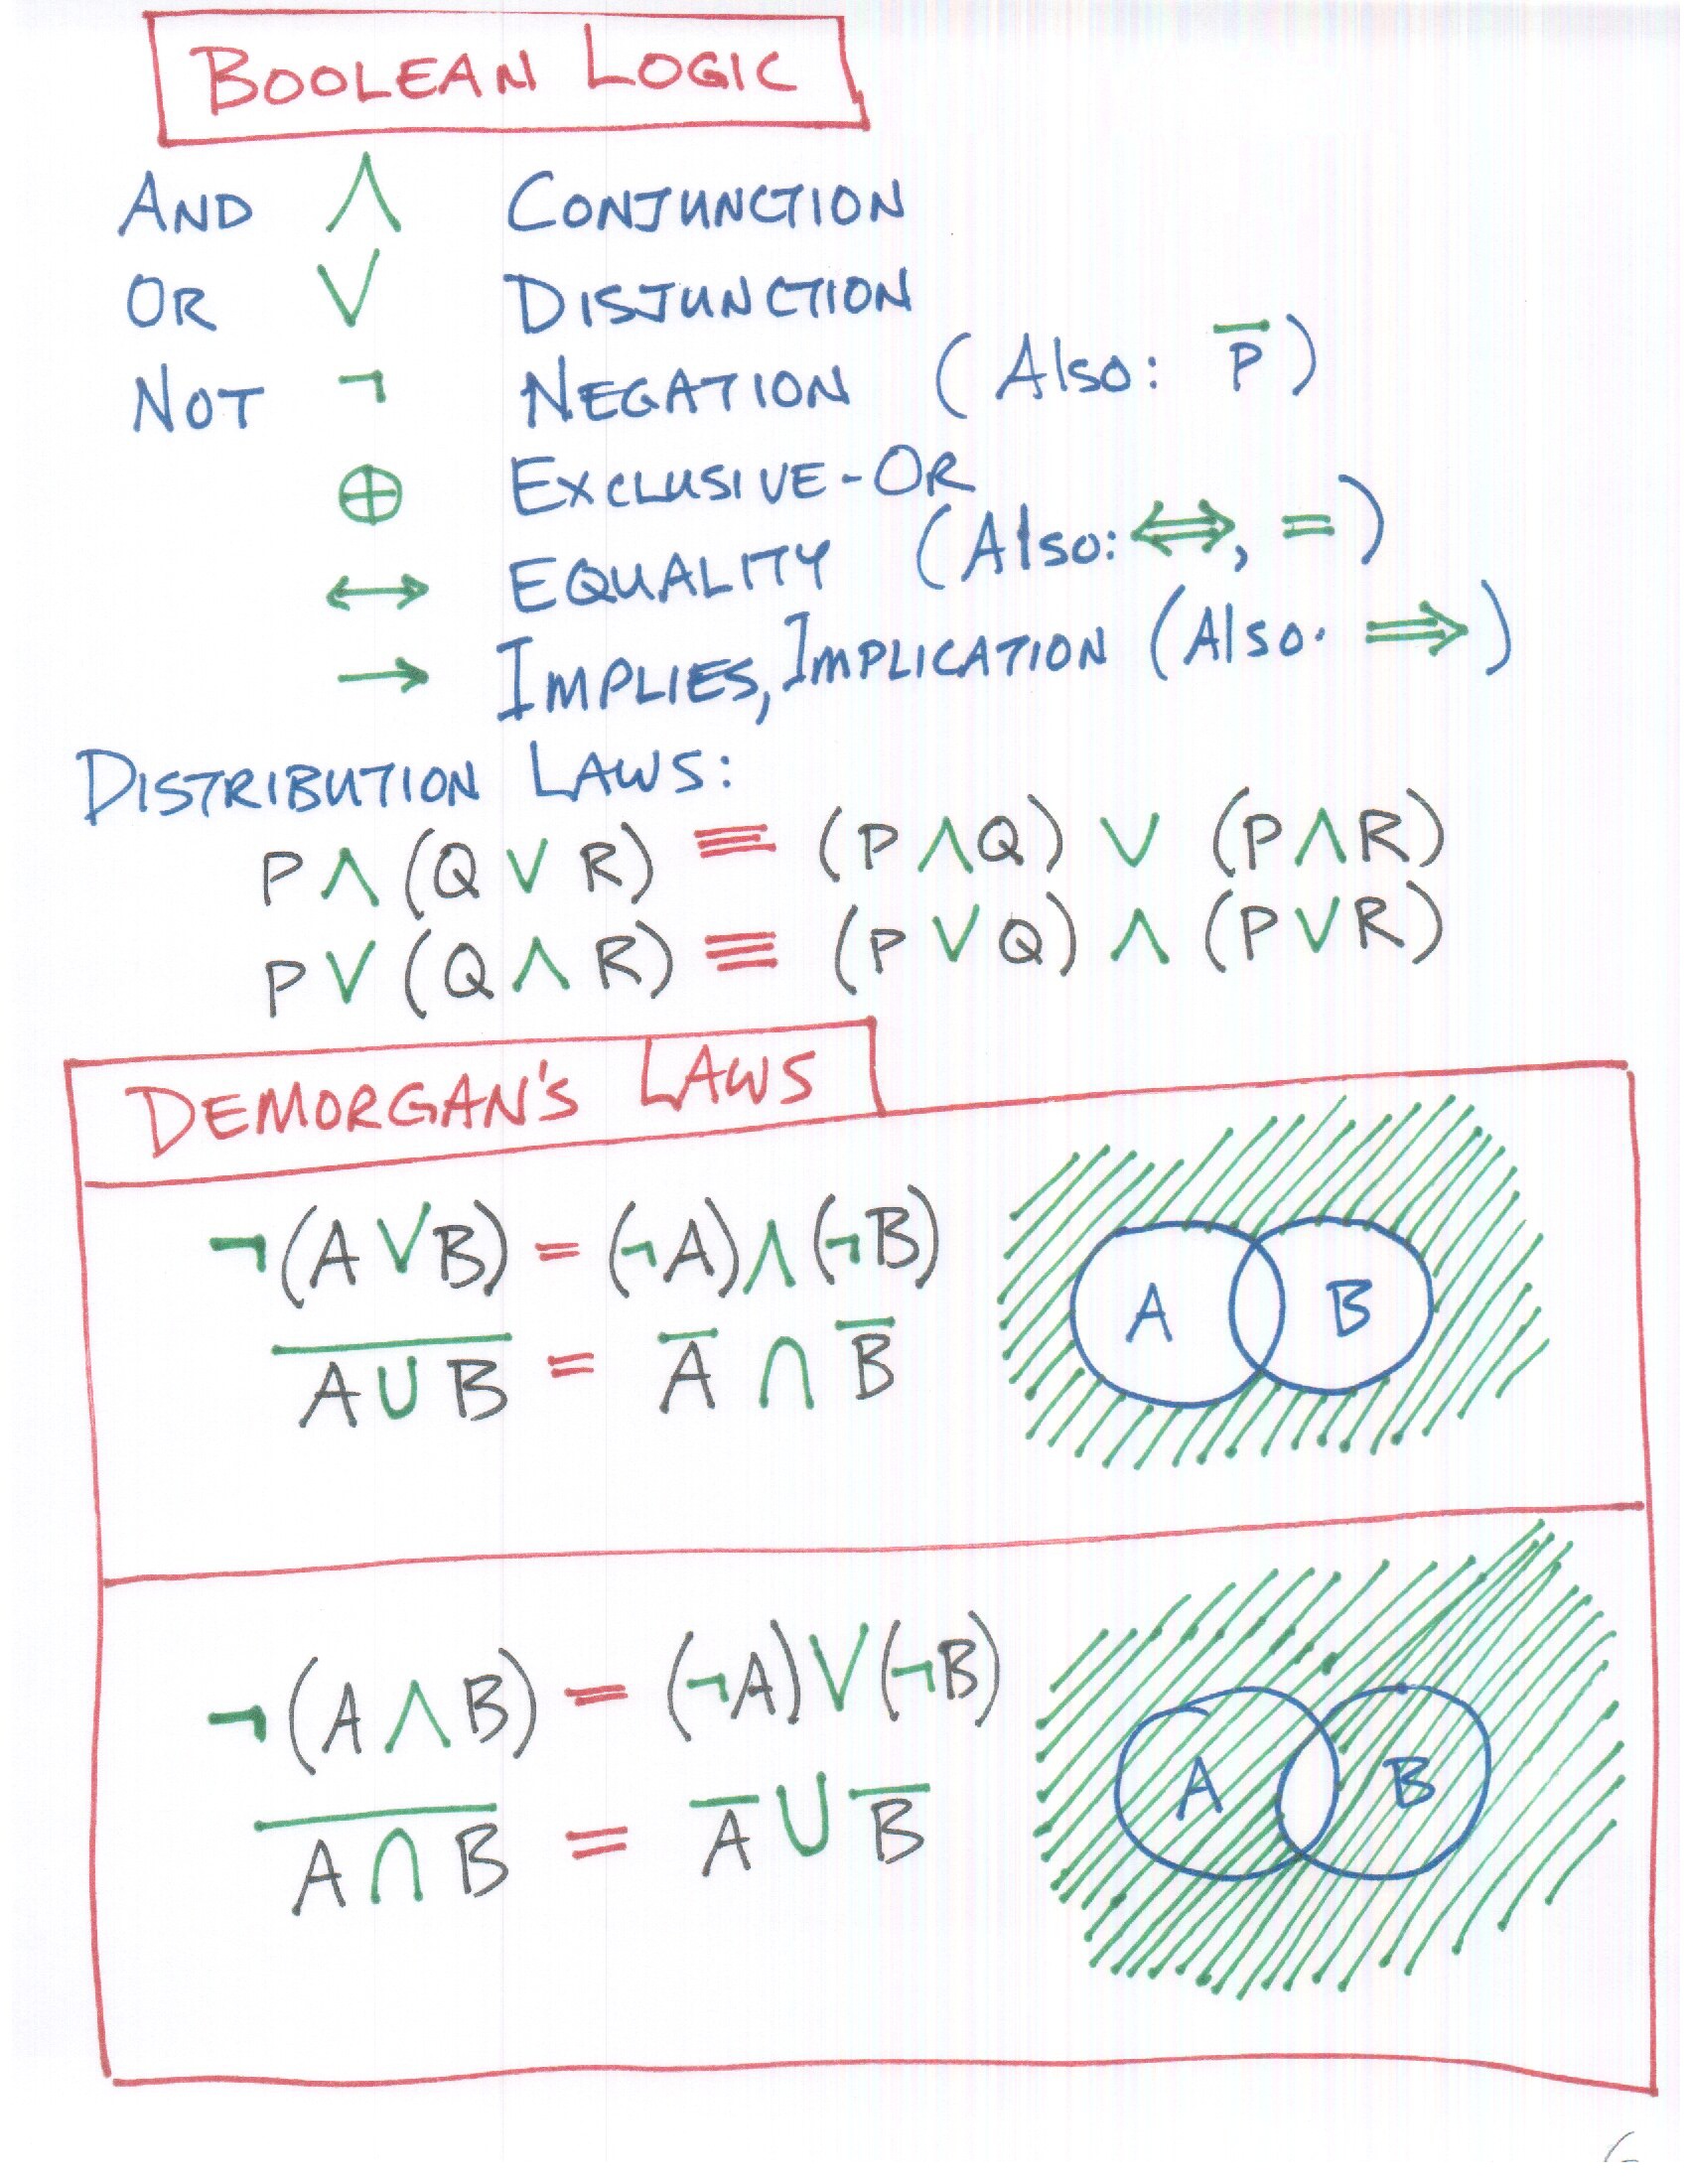 BOOLEAN LOGIC
AND ∧ CONJUNCTION
OR ∨ DISJUNCTION
NOT ¬ NEGATION (Also: P̅)
⊕ EXCLUSIVE-OR
↔ EQUALITY (Also: ⇔, =)
→ IMPLIES, IMPLICATION (Also: ⇒)
DISTRIBUTION LAWS:
P ∧ (Q ∨ R) ≡ (P ∧ Q) ∨ (P ∧ R)
P ∨ (Q ∧ R) ≡ (P ∨ Q) ∧ (P ∨ R)
DEMORGAN'S LAWS
¬(A ∨ B) = (¬A) ∧ (¬B)
A̅ ̅∪̅ ̅B̅ = A̅ ∩ B̅
A B
¬(A ∧ B) = (¬A) ∨ (¬B)
A̅ ̅∩̅ ̅B̅ = A̅ ∪ B̅
A B